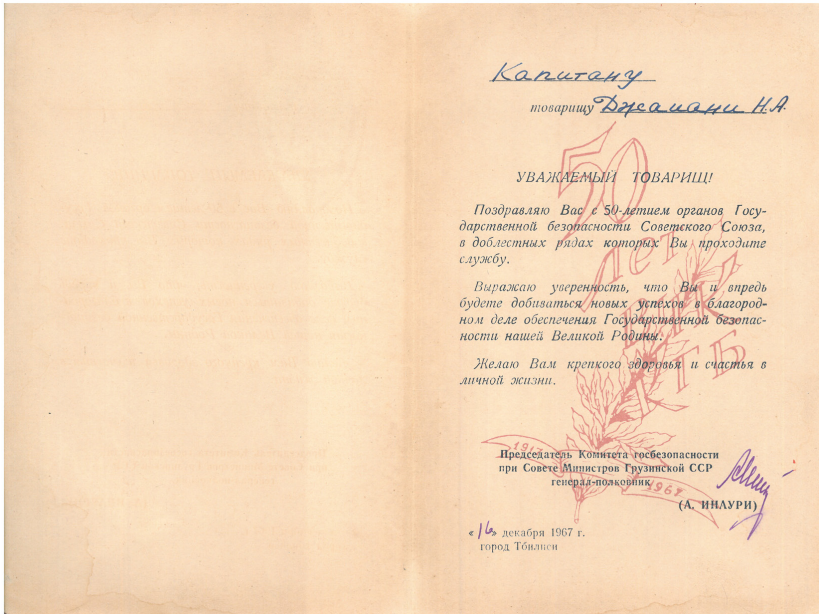 Капитану
товарищу Джапани Н.А.
УВАЖАЕМЫЙ ТОВАРИЩ!
Поздравляю Вас с 50-летием органов Госу-
дарственной безопасности Советского Союза,
в доблестных рядах которых Вы проходите
службу.
Выражаю уверенность, что Вы и впредь
будете добиваться новых успехов в благород-
ном деле обеспечения Государственной безопас-
ности нашей Великой Родины.
Желаю Вам крепкого здоровья и счастья в
личной жизни.
50
лет
ВЧК
КГБ
1917
1967
Председатель Комитета госбезопасности
при Совете Министров Грузинской ССР
генерал-полковник
(А. ИНАУРИ)
«16» декабря 1967 г.
город Тбилиси